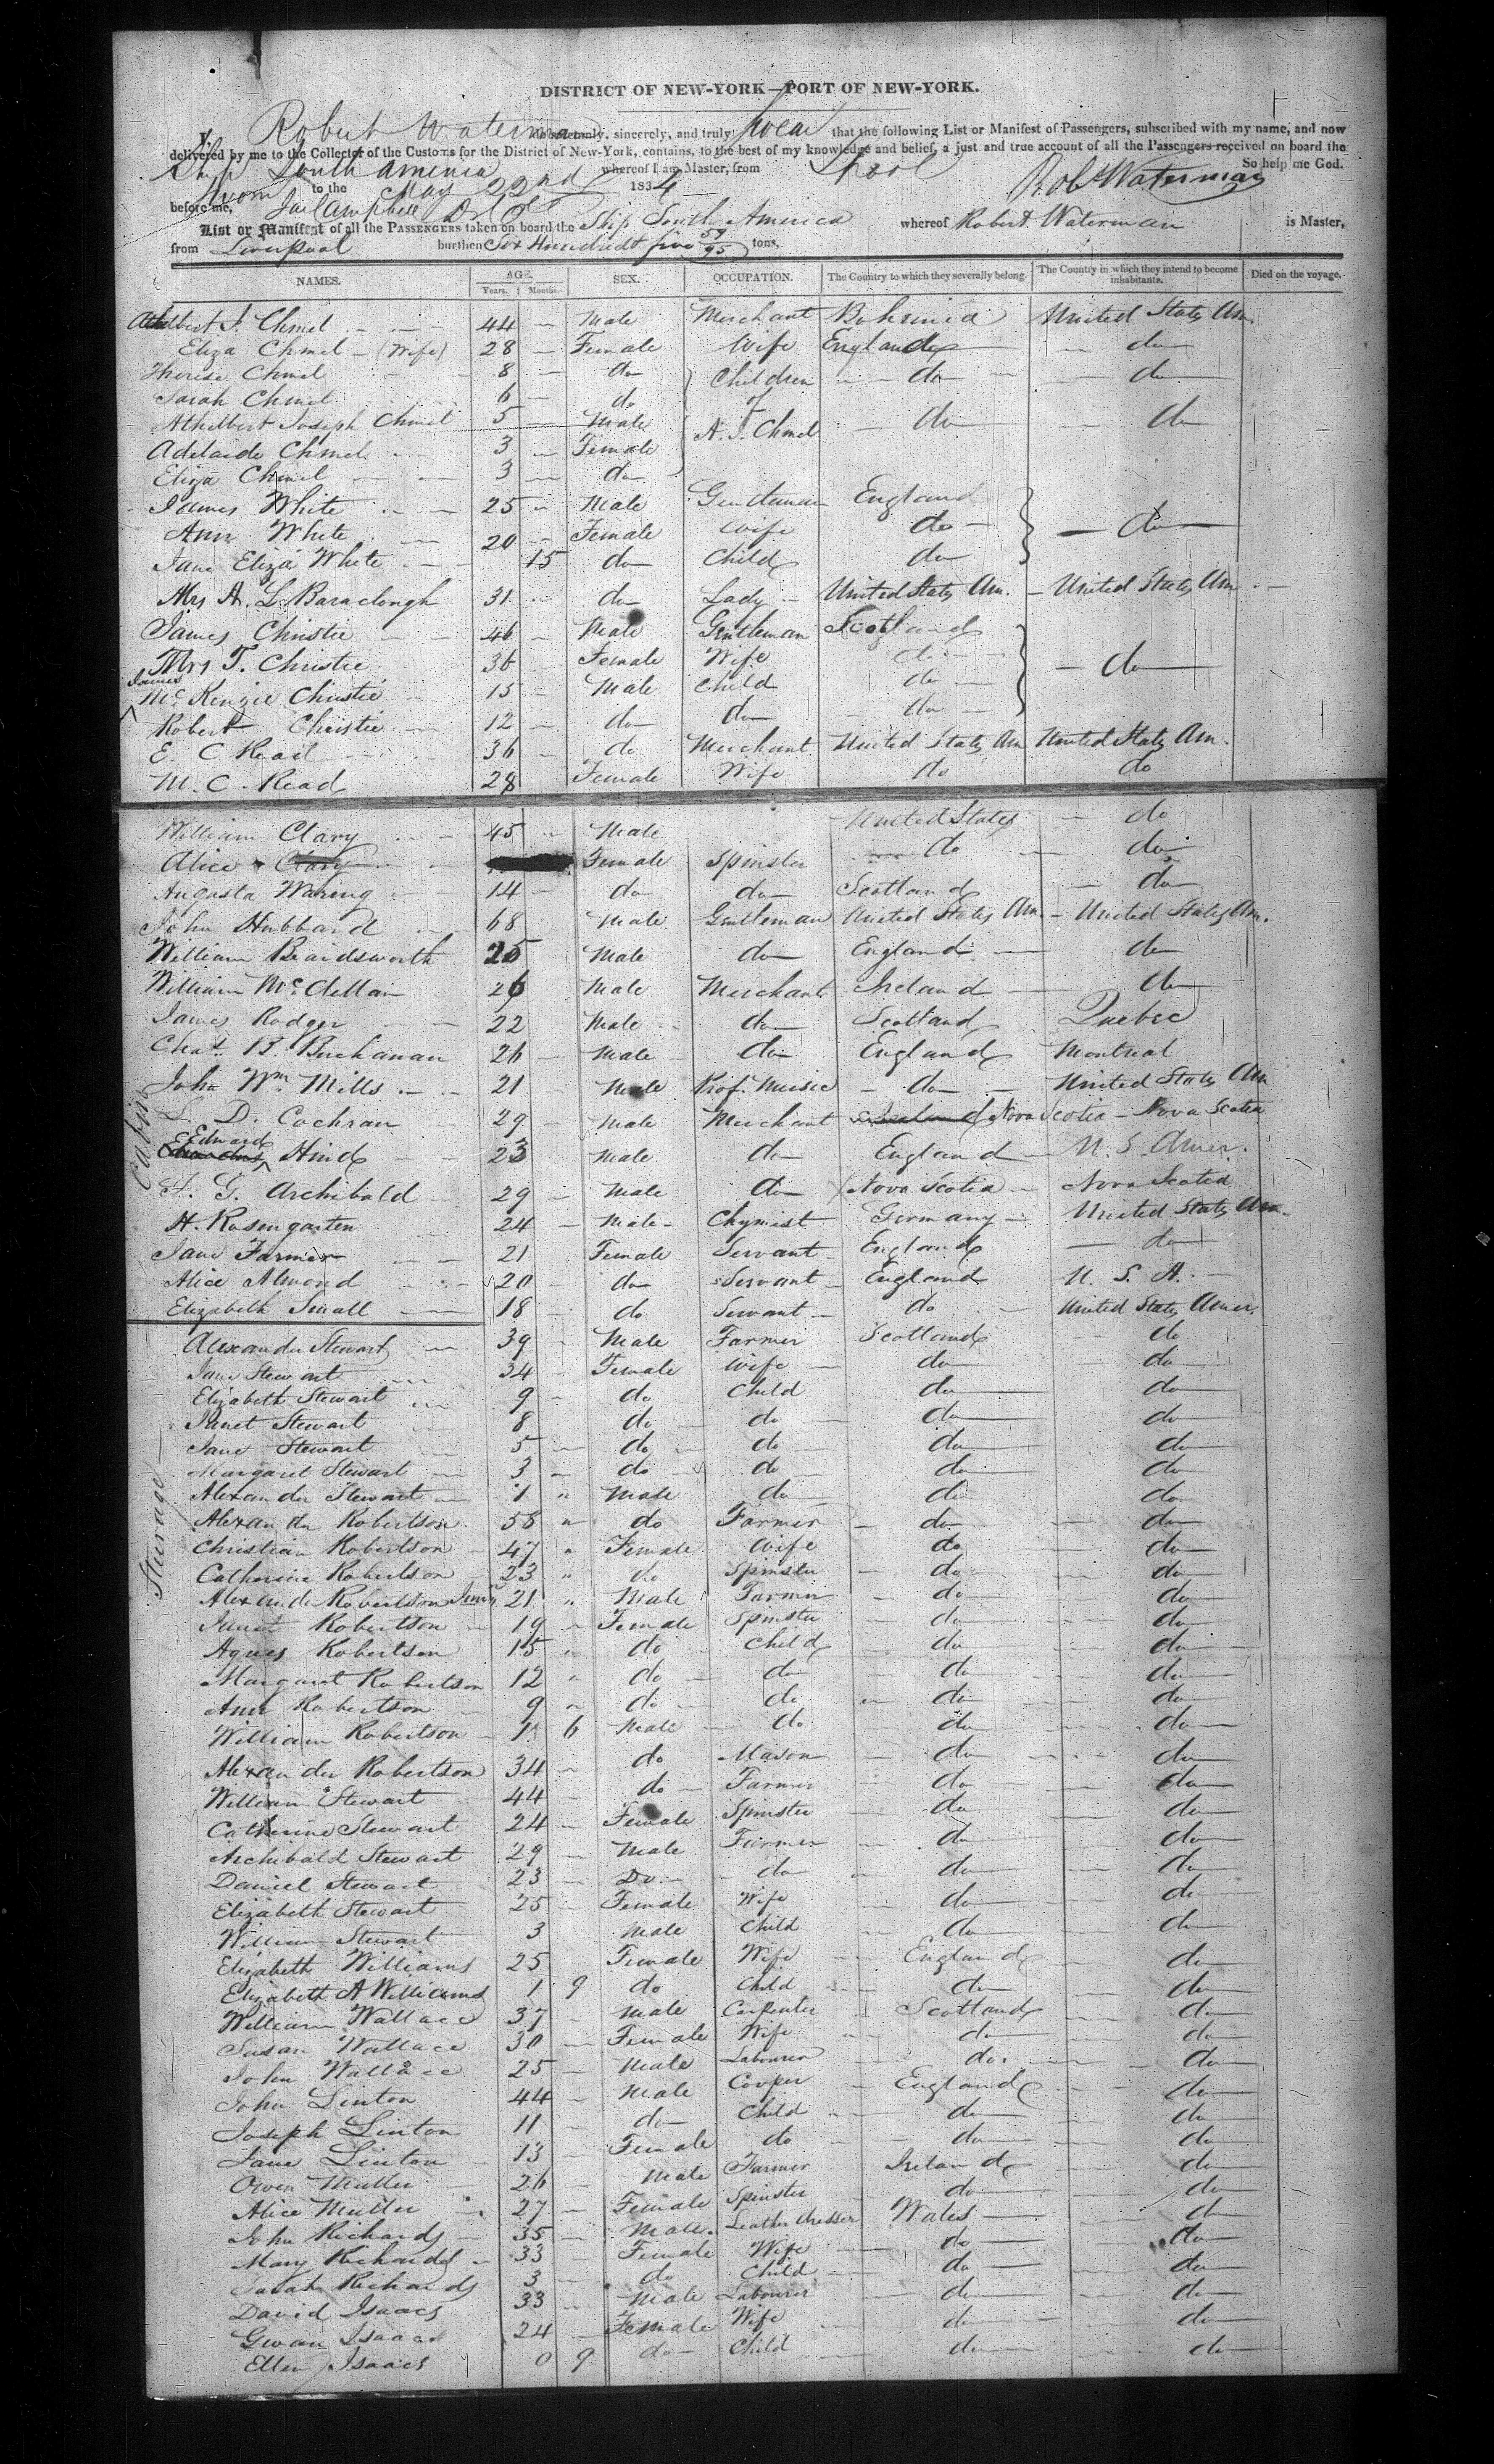 DISTRICT OF NEW-YORK—PORT OF NEW-YORK.
I, Robert Waterman do solemnly, sincerely, and truly swear that the following List or Manifest of Passengers, subscribed with my name, and now
delivered by me to the Collector of the Customs for the District of New-York, contains, to the best of my knowledge and belief, a just and true account of all the Passengers received on board the
Ship South America whereof I am Master, from Lpool So help me God.
Sworn to the May 22nd 1834 Robt Waterman
before me,
List or Manifest of all the PASSENGERS taken on board the Ship South America whereof Robert Waterman is Master,
from Liverpool burthen Six Hundred five 59/95 tons.
NAMES. AGE. SEX. OCCUPATION. The Country to which they severally belong. The Country in which they intend to become inhabitants. Died on the voyage.
Years. Months.
Athelbert J. Chmel 44 Male Merchant Bohemia United States Am.
Eliza Chmel (Wife) 28 Female Wife England do
Therese Chmel 8 do Children do do
Sarah Chmel 6 do of
Athelbert Joseph Chmel 5 Male A. J. Chmel do do
Adelaide Chmel 3 Female
Eliza Chmel 3 do
James White 25 Male Gentleman England
Ann White 20 Female Wife do do
Jane Eliza White 15 do Child do
Mrs A. L. Baraclough 31 do Lady United States Am. United States Am
James Christie 46 Male Gentleman Scotland
Mrs T. Christie 36 Female Wife do do
James McKenzie Christie 15 Male Child do
Robert Christie 12 do do do
E. C. Read 36 do Merchant United States Am United States Am.
M. C. Read 28 Female Wife do do
William Clary 45 Male United States do
Alice Clary Female Spinster do do
Augusta Waring 14 do do Scotland do
John Hubbard 68 Male Gentleman United States Am. United States Am.
William Beaidsworth 25 Male do England do
William McClellan 26 Male Merchant Ireland do
James Rodger 22 Male do Scotland Quebec
Chas. B. Buchanan 26 Male do England Montreal
John Wm Mills 21 Male Prof. Music do United States Am
Cabin
L. D. Cochran 29 Male Merchant Nova Scotia Nova Scotia
Edward Hind 23 Male do England U. S. Amer.
G. Archibald 29 Male do Nova Scotia Nova Scotia
H. Rosengarten 24 Male Chymist Germany United States Am.
Jane Farmer 21 Female Servant England do
Alice Almond 20 do Servant England U. S. A.
Elizabeth Small 18 do Servant do United States Amer.
Sturage
Alexander Stewart 39 Male Farmer Scotland do
Jane Stewart 34 Female Wife do do
Elizabeth Stewart 9 do Child do do
Janet Stewart 8 do do do do
Jane Stewart 5 do do do do
Margaret Stewart 3 do do do do
Alexander Stewart 1 " Male do do do
Alexander Robertson 58 " do Farmer do do
Christian Robertson 47 " Female Wife do do
Catherine Robertson 23 " do Spinster do do
Alexander Robertson Junr 21 " Male Farmer do do
Janet Robertson 19 " Female Spinster do do
Agnes Robertson 15 " do Child do do
Margaret Robertson 12 " do do do do
Ann Robertson 9 " do do do do
William Robertson 1 6 Male do do do
Alexander Robertson 34 do Mason do do
William Stewart 44 do Farmer do do
Catherine Stewart 24 Female Spinster do do
Archibald Stewart 29 Male Farmer do do
Daniel Stewart 23 Do do do do
Elizabeth Stewart 25 Female Wife do do
William Stewart 3 Male Child do do
Elizabeth Williams 25 Female Wife England do
Elizabeth A Williams 1 9 do Child do do
William Wallace 37 Male Carpenter Scotland do
Susan Wallace 30 Female Wife do do
John Wallace 25 Male Labourer do do
John Linton 44 Male Cooper England do
Joseph Linton 11 do Child do do
Jane Linton 13 Female do do do
Owen Muller 26 Male Farmer Ireland do
Alice Muller 27 Female Spinster do do
John Richards 35 Male Leather dresser Wales do
Mary Richards 33 Female Wife do do
Sarah Richards 3 do Child do do
David Isaacs 33 Male Labourer do do
Gwan Isaacs 24 Female Wife do do
Ellen Isaacs 0 9 do Child do do